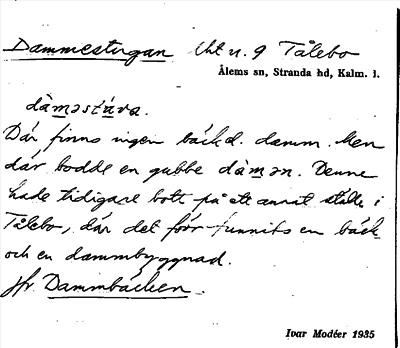 Dammestugan Uht n. 9 Tålebo
Ålems sn, Stranda hd, Kalm. l.
dàməstùva.
Där finns ingen bäck l. damm. Men
där bodde en gubbe dàmən. Denne
hade tidigare bott på ett annat ställe i
Tålebo, där det förr funnits en bäck
och en dammbyggnad.
Jfr Dammbäcken.
Ivar Modéer 1935